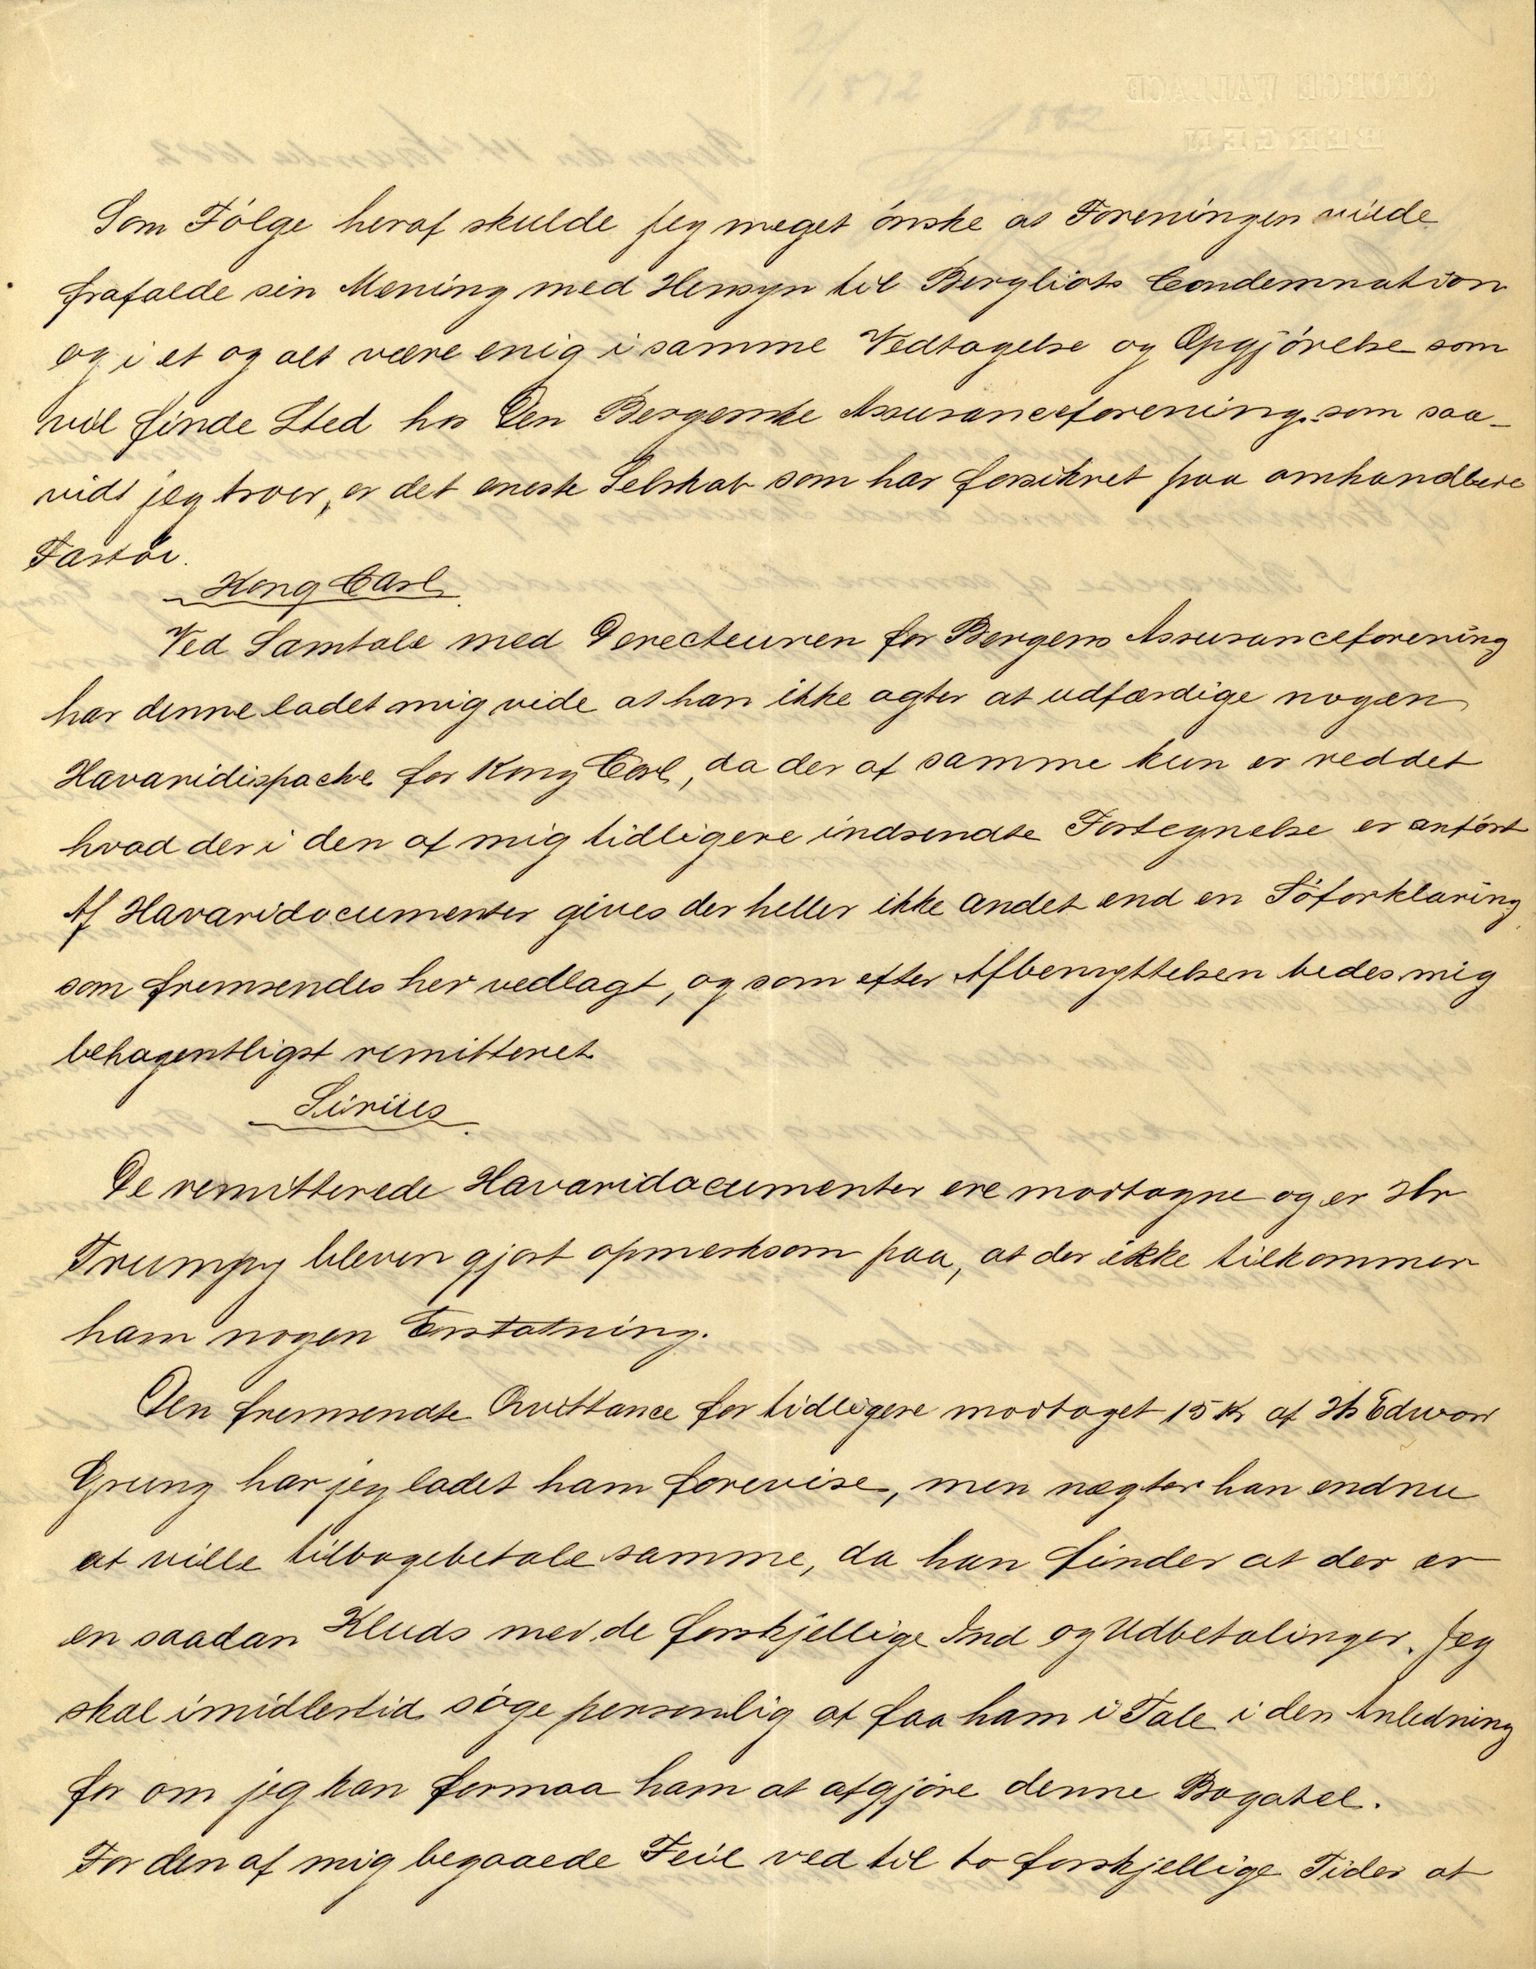 Som Fölge heraf skulde jeg meget önske at Foreningen vilde
frafalde sin Mening med Hensyn til Bergliots Condemnation
og i et og alt være enig i samme Vedtagelse og Opgjörelse som
vil finde Sted hos Den Bergenske Assuranceforening, som saa-
vidt jeg troer, er det eneste Selskab som har forsikret paa omhandlede
Fartöi.
Kong Carl
Ved Samtale med Derecteuren for Bergens Assuranceforening
har denne ladet mig vide at han ikke agter at udfærdige nogen
Havaridispache for Kong Carl, da der af samme kun er reddet
hvad der i den af mig tidligere indsendte Fortegnelse er anfört
Af Havaridocumenter gives der heller ikke andet end en Söforklaring
som fremsendes her vedlagt, og som efter Afbenyttelsen bedes mig
behagentligst remitteret
Sirius
De remitterede Havaridocumenter ere modtagne og er Hr
Trumpy bleven gjort opmerksom paa, at der ikke tilkommer
ham nogen Erstatning.
Den fremsendte Qvittance for tidligere modtaget 15 Kr af Hr Edward
Grung har jeg ladet ham forevise, men nægter han endnu
at ville tilbagebetale samme, da han finder at der er
en saadan Kluds med de forskjellige Ind og Udbetalinger. Jeg
skal imidlertid söge personlig at faa ham i Tale i den Anledning
for om jeg kan formaa ham at afgjöre denne Bagatel.
For den af mig begaaede Feil ved til to forskjellige Tider at